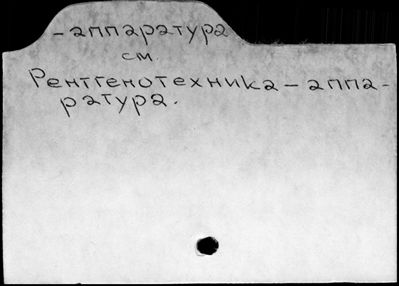 – аппаратура
см.
Рентгенотехника – аппа-
ратура.